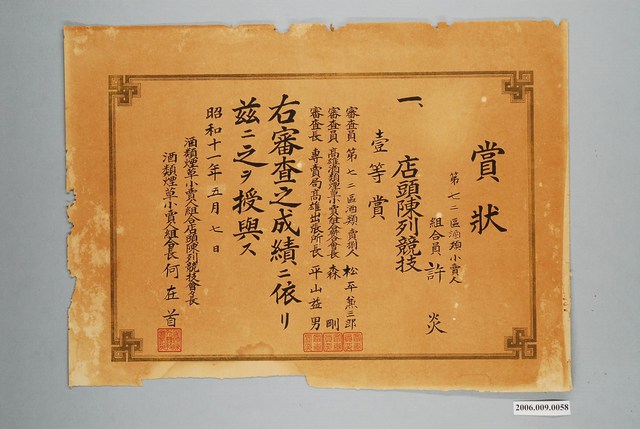 賞狀
第七二區酒類小賣人
組合員 許炎
一、店頭陳列競技
壹等賞
審查員 第七二區酒類賣捌人 松平薰三郎
審查員 高雄酒類煙草小賣人組合會長 森剛
審查長 專賣局高雄出張所長 平山益男
右審查之成績ニ依リ
茲ニ之ヲ授與ス
昭和十一年五月七日
酒類煙草小賣人組合店頭陳列競技會々長
酒類煙草小賣人組合長 何在首
2006.009.0058